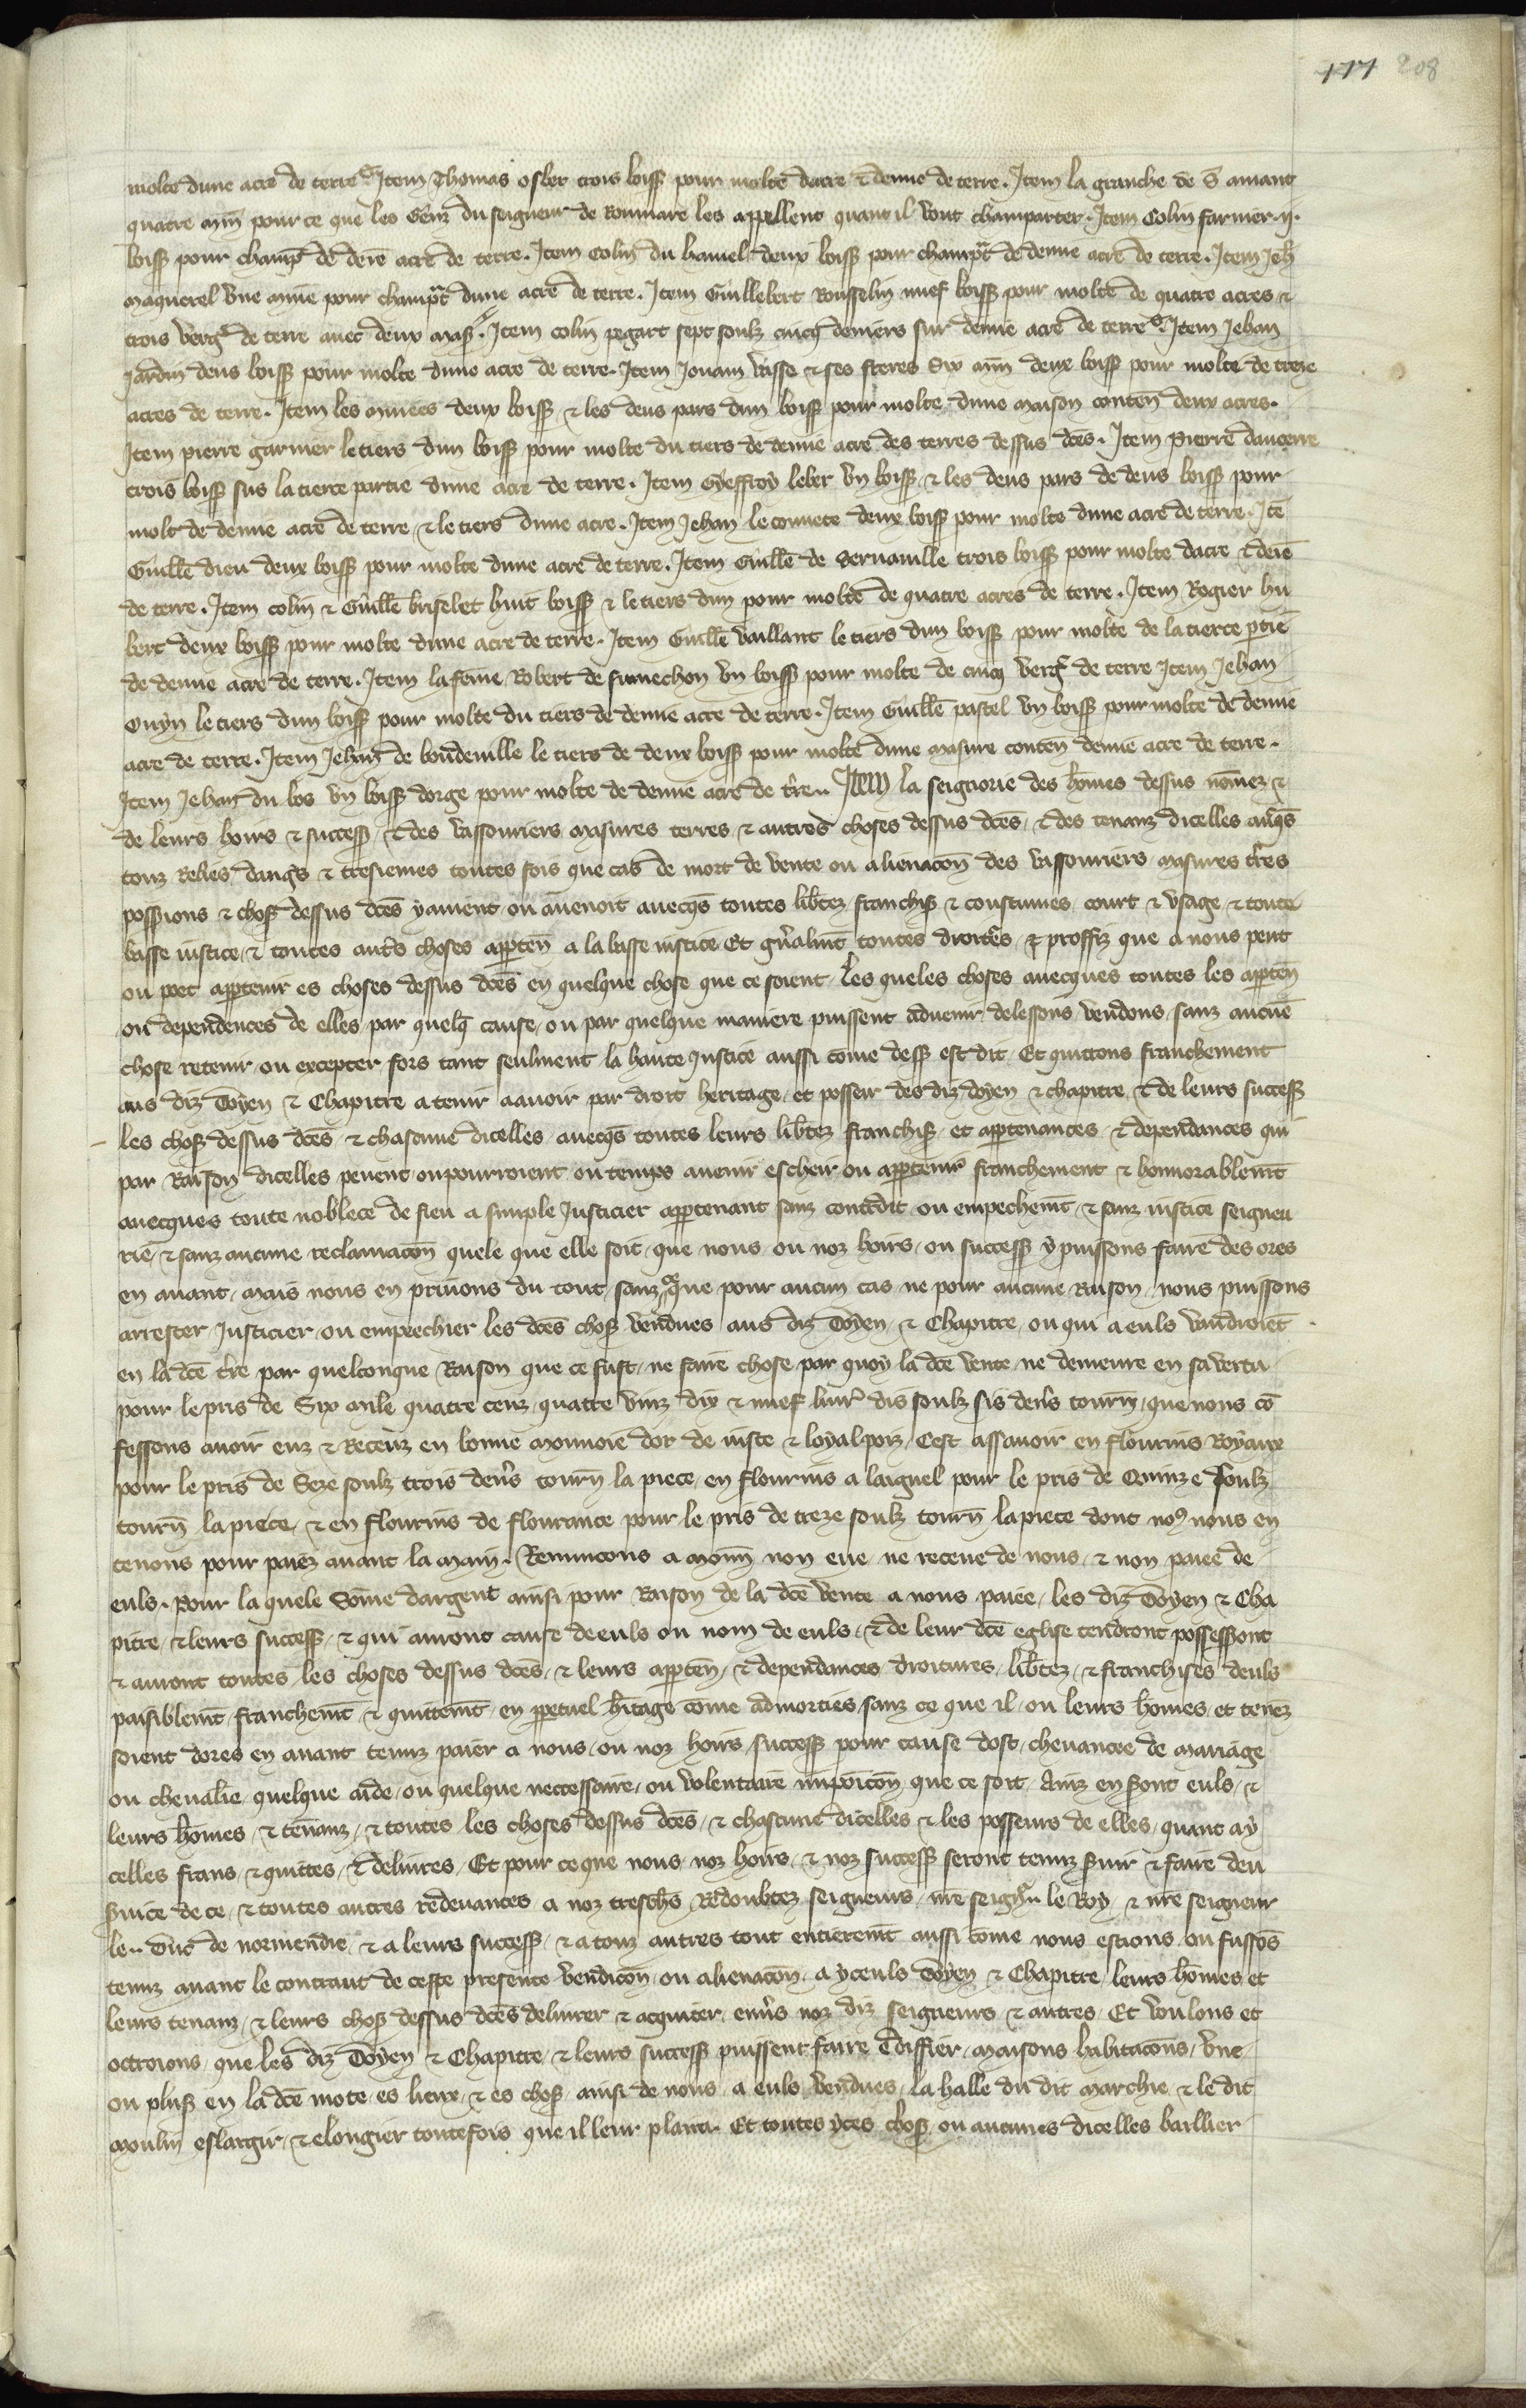 177 208
molte dune acre de terre Item Thomas osber trois boiss pour molte dacre & demie de terre. Item la granche de S amant
quatre min pour ce que les Genz du seigneur de Roumare les appellent quant il vont champarter. Item Colin farmer .ij.
boiss pour champt de deme acre de terre. Item Colin du hamel deux boiss pour champt de demie acre de terre. Item Jeh
maquerel vne mine pour champt dune acre de terre. Item Guillebert Rousselin nuef boiss pour molte de quatre acres &
trois verg de terre auec deux mas. Item colin pegart sept soulz cincq deniers sur demie acre de terre Item Jehan
Jardin deus boiss pour molte dune acre de terre. Item Jouain vasse & ses freres Six min deux boiss pour molte de treze
acres de terre. Item les deux boiss & les deus pars dun boiss pour molte dune maison conten deux acres.
Item pierre garnier le tiers dun boiss pour molte du tiers de demie acre des terres dessus dces. Item Pierre daucerre
trois boiss sus la tierce partie dune acre de terre. Item Gyeffroy leber vn boiss & les deus pars de deus boiss pour
molt de demie acre de terre & le tiers dune acre. Item Jehan le conuete deux boiss pour molte dune acre de terre. Ite
Guille dieu deux boiss pour molte dune acre de terre. Item Guille de bernauille trois boiss pour molte dacre & deie
de terre. Item colin & Guille briselet huit boiss & le tiers dun pour molte de quatre acres de terre. Item Rogier hu
bert deux boiss pour molte dune acre de terre. Item Guille vaillant le tiers dun boiss pour molte de la tierce ptie
de demie acre de terre. Item la feme Robert de fumechon vn boiss pour molte de cincq verg de terre Item Jehan
Ouyn le tiers dun boiss pour molte du tiers de demie acre de terre. Item Guille pastel vn boiss pour molte de demie
acre de terre. Item Jehan de bondeuille le tiers de deux boiss pour molte dune masure conten demie acre de terre.
Item Jehan du bos vn boiss dorge pour molte de demie acre de tre.. Item la seignorie des homes dessus nomez &
de leurs hoirs & success & des vassouriers masures terres & autres choses dessus dces & des tenanz dicelles auqs
touz reliés dangs & tresiemes toutes fois que cas de mort de vente ou alienacon des vassouriers masures tres
possions & chos dessus dces y auient ou auenoit auecqs toutes libtez franchis & coustumes court & vsage & toute
basse iustice & toutes autrs choses appten a la basse iustice Et gnalmt toutes droites & proffiz que a nous peut
ou poet apptenir es choses dessus dces en quelque chose que ce soient les queles choses auecques toutes les appten
ou dependences de elles par quelq cause ou par quelque maniere puissent aduenir delessons vendons sanz aucue
chose retenir ou excepter fors tant seulment la haute Justice aussi come dess est dit Et quittons franchement
aus diz Doyen & Chapitre a tenir a auoir par droit heritage et posseir des diz doyen & chapitre & de leurs success
les chos dessus dces & chascune dicelles auecqs toutes leurs libtez franchis et appertenances & dependances qui
par Raison dicelles peuent ou pourroient ou temps auenir escheir ou apptenir franchement & honnorablemt
auecques toute noblece de fieu a simple Justicier appertenant sanz contredit ou empechemt & sanz iustice seigneu
rie & sanz aucune reclamacon quele que elle soit que nous ou noz hoirs ou success y puissons faire des ores
en auant mais nous en priuons du tout sanz que pour aucun cas ne pour aucune Raison nous puissons
arrester Justicier ou empeechier les dces chos vendues aus diz Doyen & Chapitre ou qui a euls vaudroiet
en la dce tre par quelconque Raison que ce fust ne faire chose par quoy la dce vente ne demeure en sa vertu
pour le pris de Six mile quatre cenz quatre vinz dix & nuef liur dis soulz sis dens tourn que nous co
fessons auoir euz & Receuz en bonne monnoie dor de iuste & loyal pois Cest assauoir en flourins Royaux
pour le pris de Seze soulz trois dens tourn la piece en flourins a laignel pour le pris de Quinze soulz
tourn la piece & en flourins de flourance pour le pris de treze soulz tourn la piece dont no9 nous en
tenons pour paiez auant la main. Renuncons a monn non eue ne receue de nous & non paiee de
euls. Pour la quele Some dargent ainsi pour Raison de la dce vente a nous paiee les diz Doyen & Cha
pitre & leurs success & qui auront cause de euls ou nom de euls & de leur dce eglise tendront possessont
& auront toutes les choses dessus dces & leurs appten & dependances droitures libtez & franchises deuls
paisiblemt franchemt & quittemt en ppetuel hitage come admorties sanz ce que il ou leurs homes et tenez
soient dores en auant tenuz paier a nous ou noz hoirs success pour cause dost cheuancee de mariage
ou cheualie quelque aide ou quelque neccessaire ou volentaire impoicon que ce soit Ainz en sont euls &
leurs homes & tenanz & toutes les choses dessus dces & chascune dicelles & les posseurs de elles quant a y
celles frans & quittes & deliures Et pour ce que nous noz hoirs & noz success seront tenuz suir & faire deu
suice de ce & toutes autres redeuances a noz treschs Redoubtez seigneurs nre seignr le Roy & nre seigneur
le.. Duc de normendie & a leurs success & a touz autres tout entieremt aussi come nous estions ou fussos
tenuz auant le contraut de ceste presente vendicon ou alienacon a yceuls Doyen & Chapitre leurs homes et
leurs tenanz & leurs chos dessus dces deliurer & acquiter enus noz diz seigneurs & autres Et voulons et
octroions que les diz Doyen & Chapitre & leurs success puissent faire Ediffier maisons habitacons vne
ou plus en la dce mote es lieux & es chos ainsi de nous a euls vendues la halle du dit marchie & le dit
moulin eslargir & elongier toutefois que il leur plaira Et toutes yces chos ou aucunes dicelles baillier